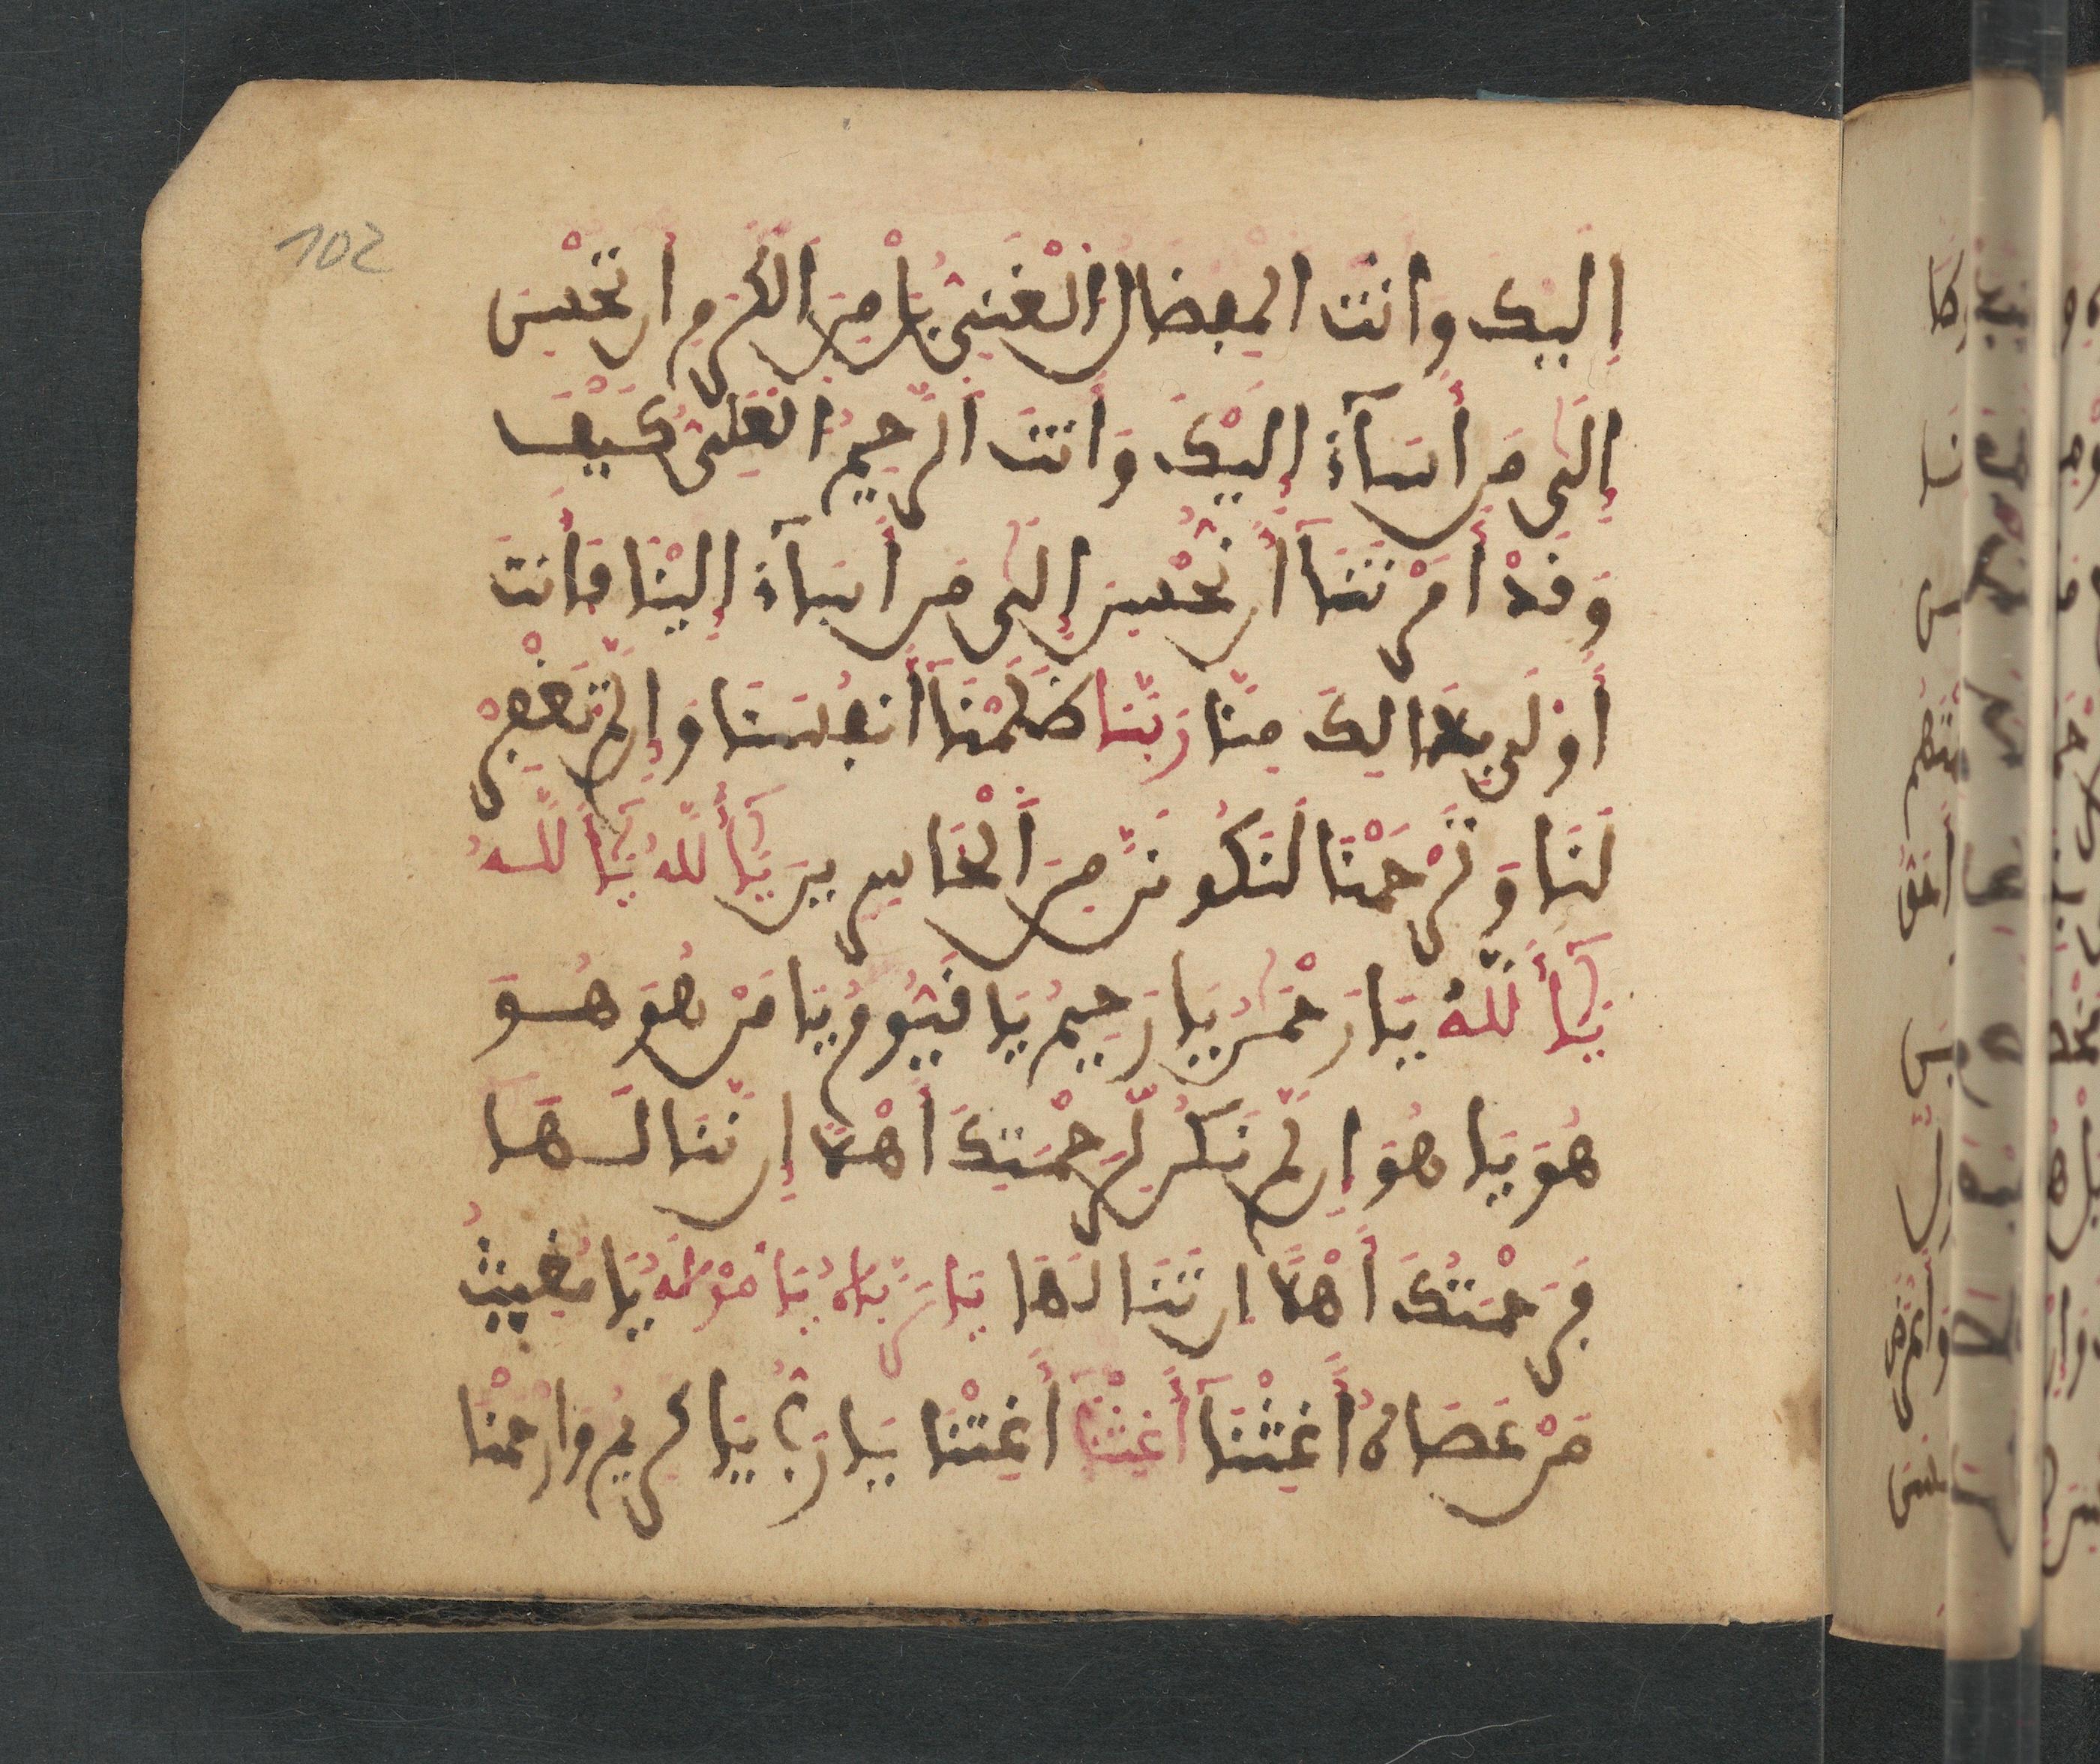 102
إليك وانت المفضال الغني بل من الكرم ان تحسن
إلى من أساء إليك وأنت الرحيم العلي كيف
وقد أمرتنا أن نحسن إلى من أساء إلينا فأنت
أولى بذالك منا ربنا ظلمنا أنفسنا وإن لم تغفر
لنا وترحمنا لنكونن من الخاسرين يا ألله يا ألله
يا ألله يا رحمن يا رحيم يا قيوم يا من هو هو
هو يا هو إن لم نكن لرحمتك أهلا إن ننالها
فرحمتك أهلا ان تنالنا يا رباه يا مولاه يا مغيث
من عصاه أغثنا أغثنا أغثنا يا رب يا كريم وارحمنا